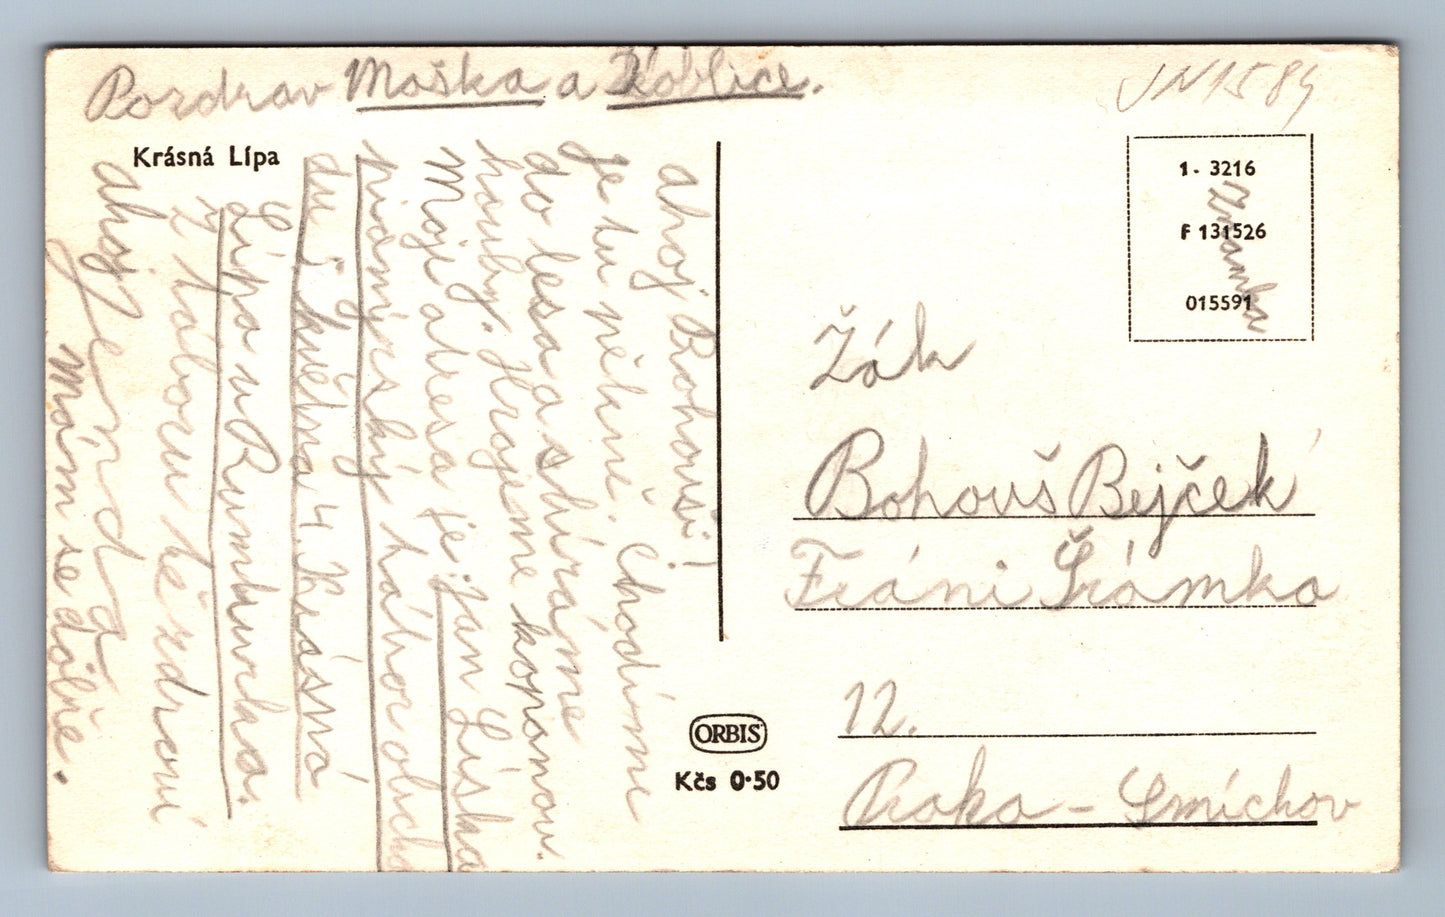 Pozdrav Moška a Koblice.
JN1584
Krásná Lípa
ahoj Bohouši!
Je tu pěkně. Chodíme
do lesa a sbíráme
houby. Hrajeme kopanou.
Moje adresa je: Jan Liška
pionýrský tábor obuch
du 5 května 4. Krásná
Lípa u Rumburka.
Z táboru tě zdraví
ahoj Jenda
Mám se dobře.
1 - 3216
F 131526
015591
Známka
Žák
Bohouš Bejček
Fráni Šrámka
12.
Praha - Smíchov
ORBIS
Kčs 0·50